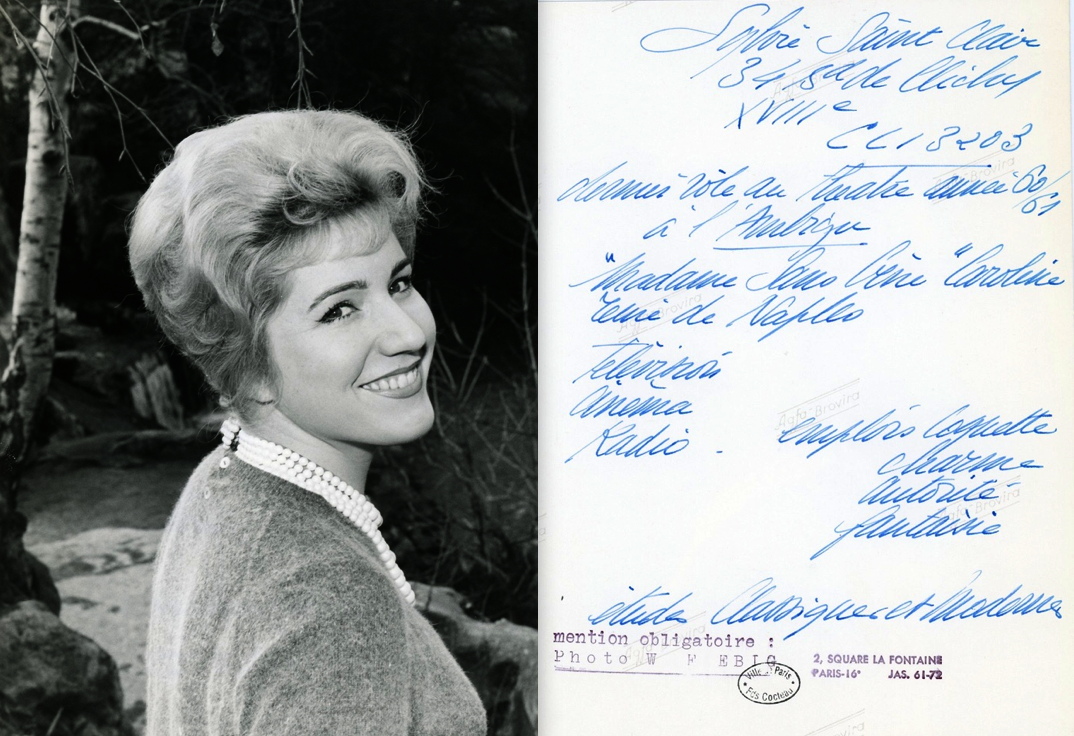 Sylvie Saint Clair
34 Bd de Clichy
XVIIIe
CLI 3203
dernier rôle au théâtre année 60/61
à l'Ambigu
"Madame Sans Gêne" Caroline
reine de Naples
Télévision
Cinéma
Radio .
emplois Coquette
charme
autorité
fantaisie
études Classiques et Modernes
mention obligatoire :
Photo W F EBIG
2, SQUARE LA FONTAINE
PARIS-16e JAS. 61-72
Ville de Paris
Fds Cocteau
Agfa-Brovira
Agfa-Brovira
Agfa-Brovira